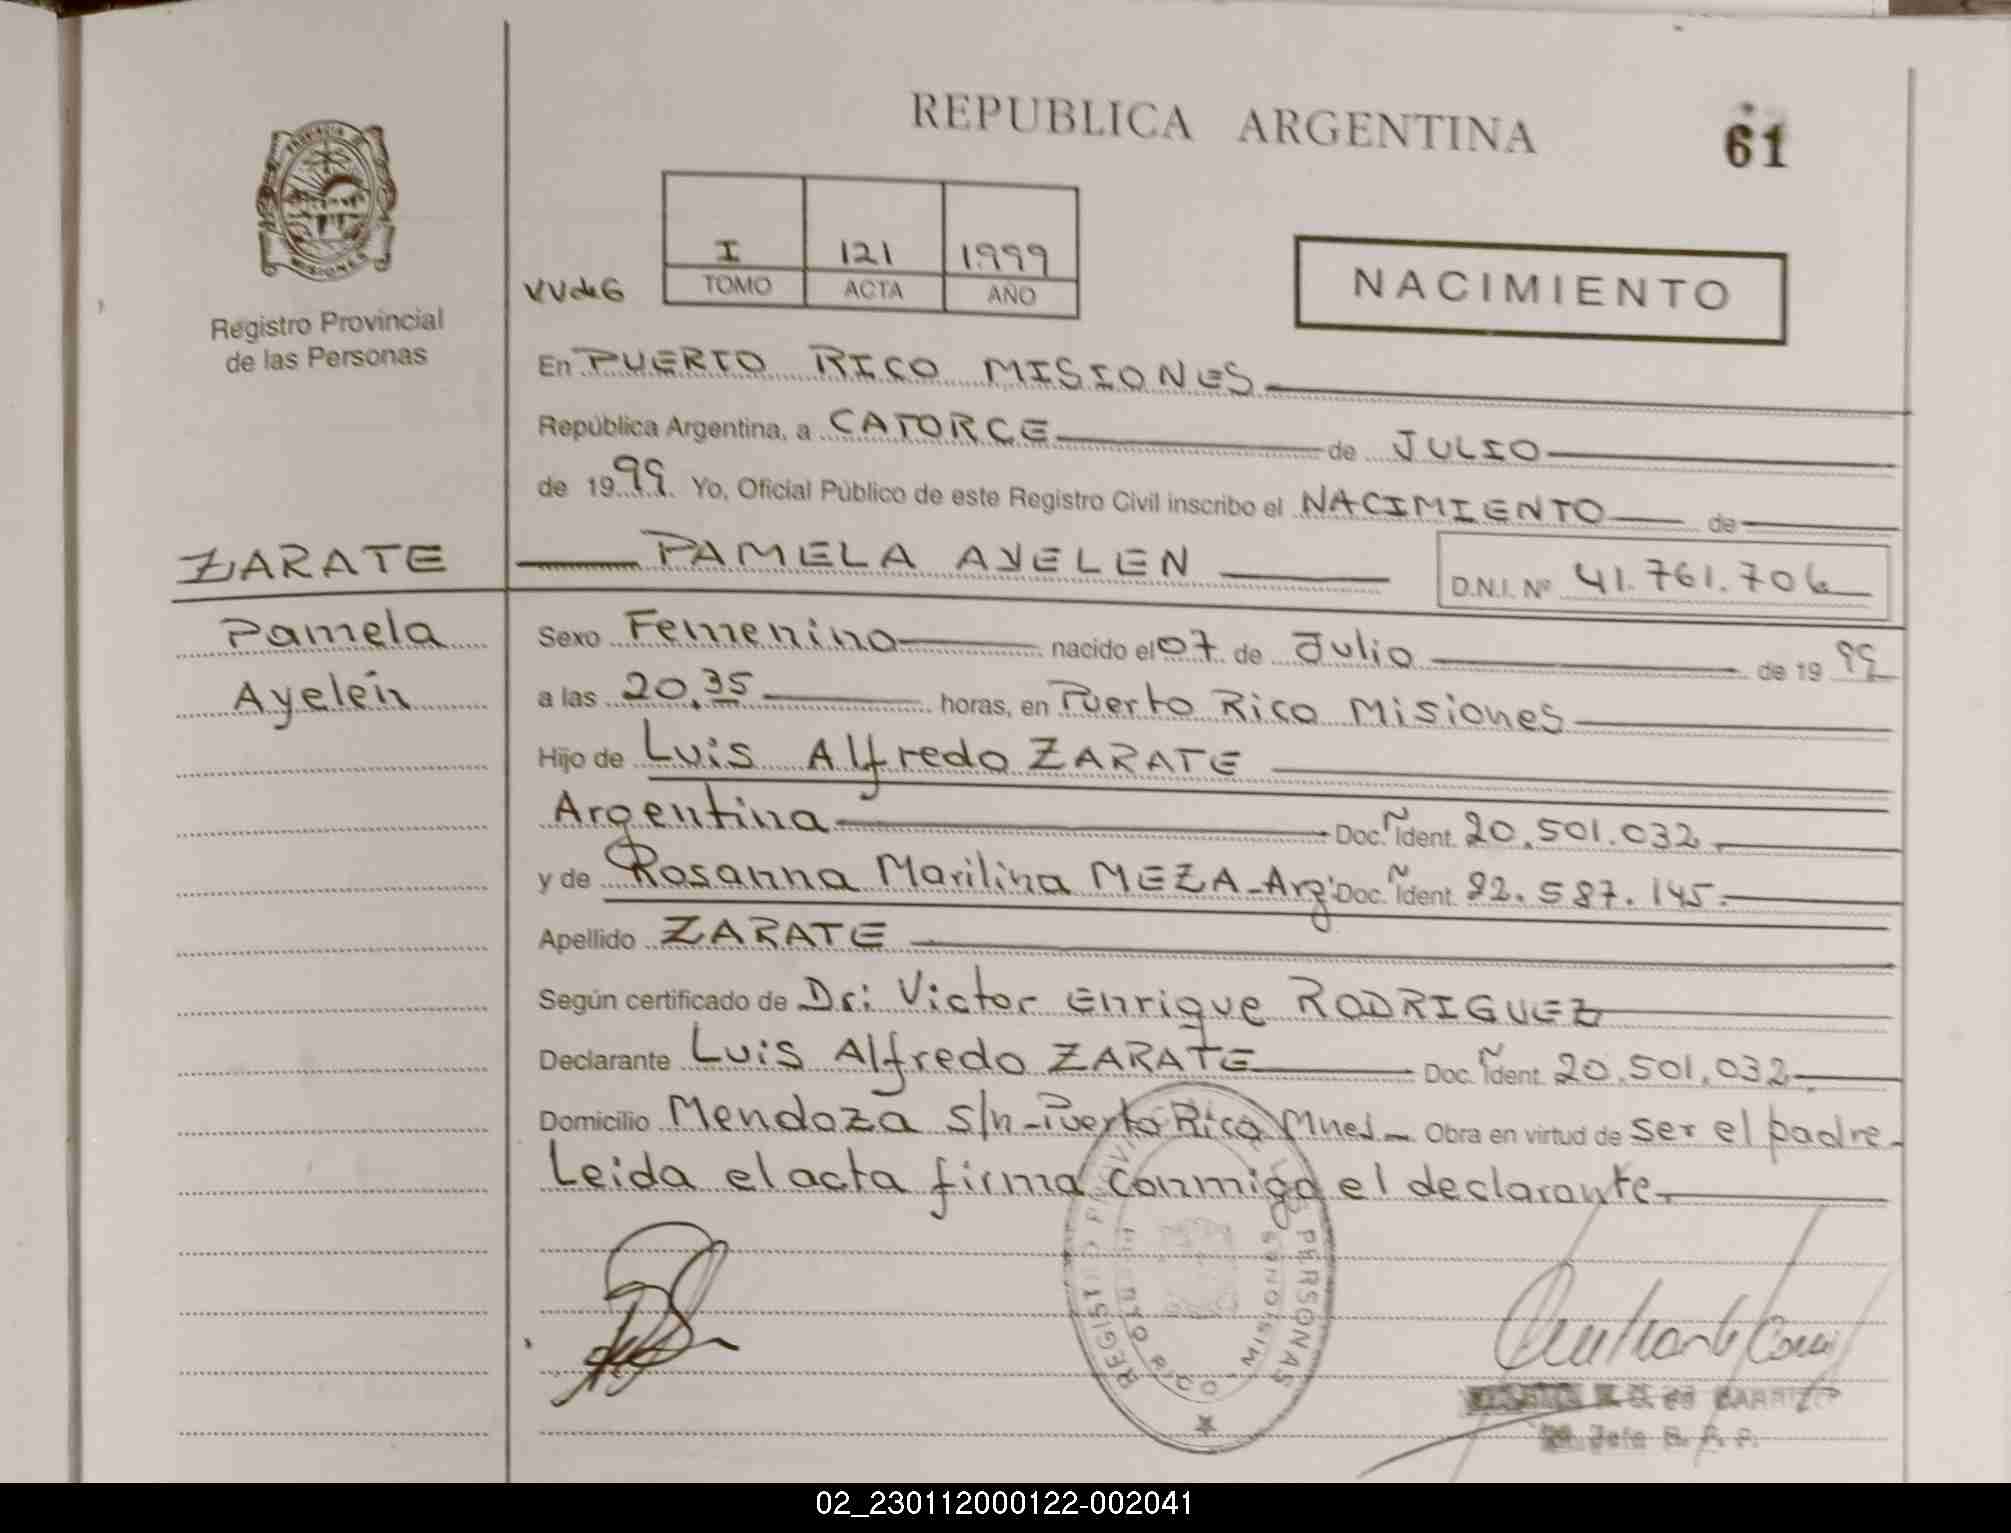 REPUBLICA ARGENTINA
61
PROVINCIA
MISIONES
Registro Provincial
de las Personas
VVdeG
I 121 1999
TOMO ACTA AÑO
NACIMIENTO
En PUERTO RICO MISIONES
República Argentina, a CATORCE de JULIO
de 1999. Yo, Oficial Público de este Registro Civil inscribo el NACIMIENTO de
ZARATE
PAMELA AYELEN D.N.I. Nº 41.761.706
Pamela
Ayelén
Sexo Femenino nacido el 07 de Julio de 1999
a las 20.35 horas, en Puerto Rico Misiones
Hijo de Luis Alfredo ZARATE
Argentina Doc. Ident. 20.501.032
y de Rosanna Marilina MEZA - Arg. Doc. Ident. 22.587.145.
Apellido ZARATE
Según certificado de Dr: Victor Enrique RODRIGUEZ
Declarante Luis Alfredo ZARATE Doc. Ident. 20.501.032
Domicilio Mendoza s/n - Puerto Rico Mnes - Obra en virtud de ser el padre -
Leida el acta firma conmigo el declarante.
REGISTRO PROVINCIAL DE LAS PERSONAS
PUERTO RICO MISIONES
de CARRIZO
Jefe R. P. P.
02_230112000122-002041